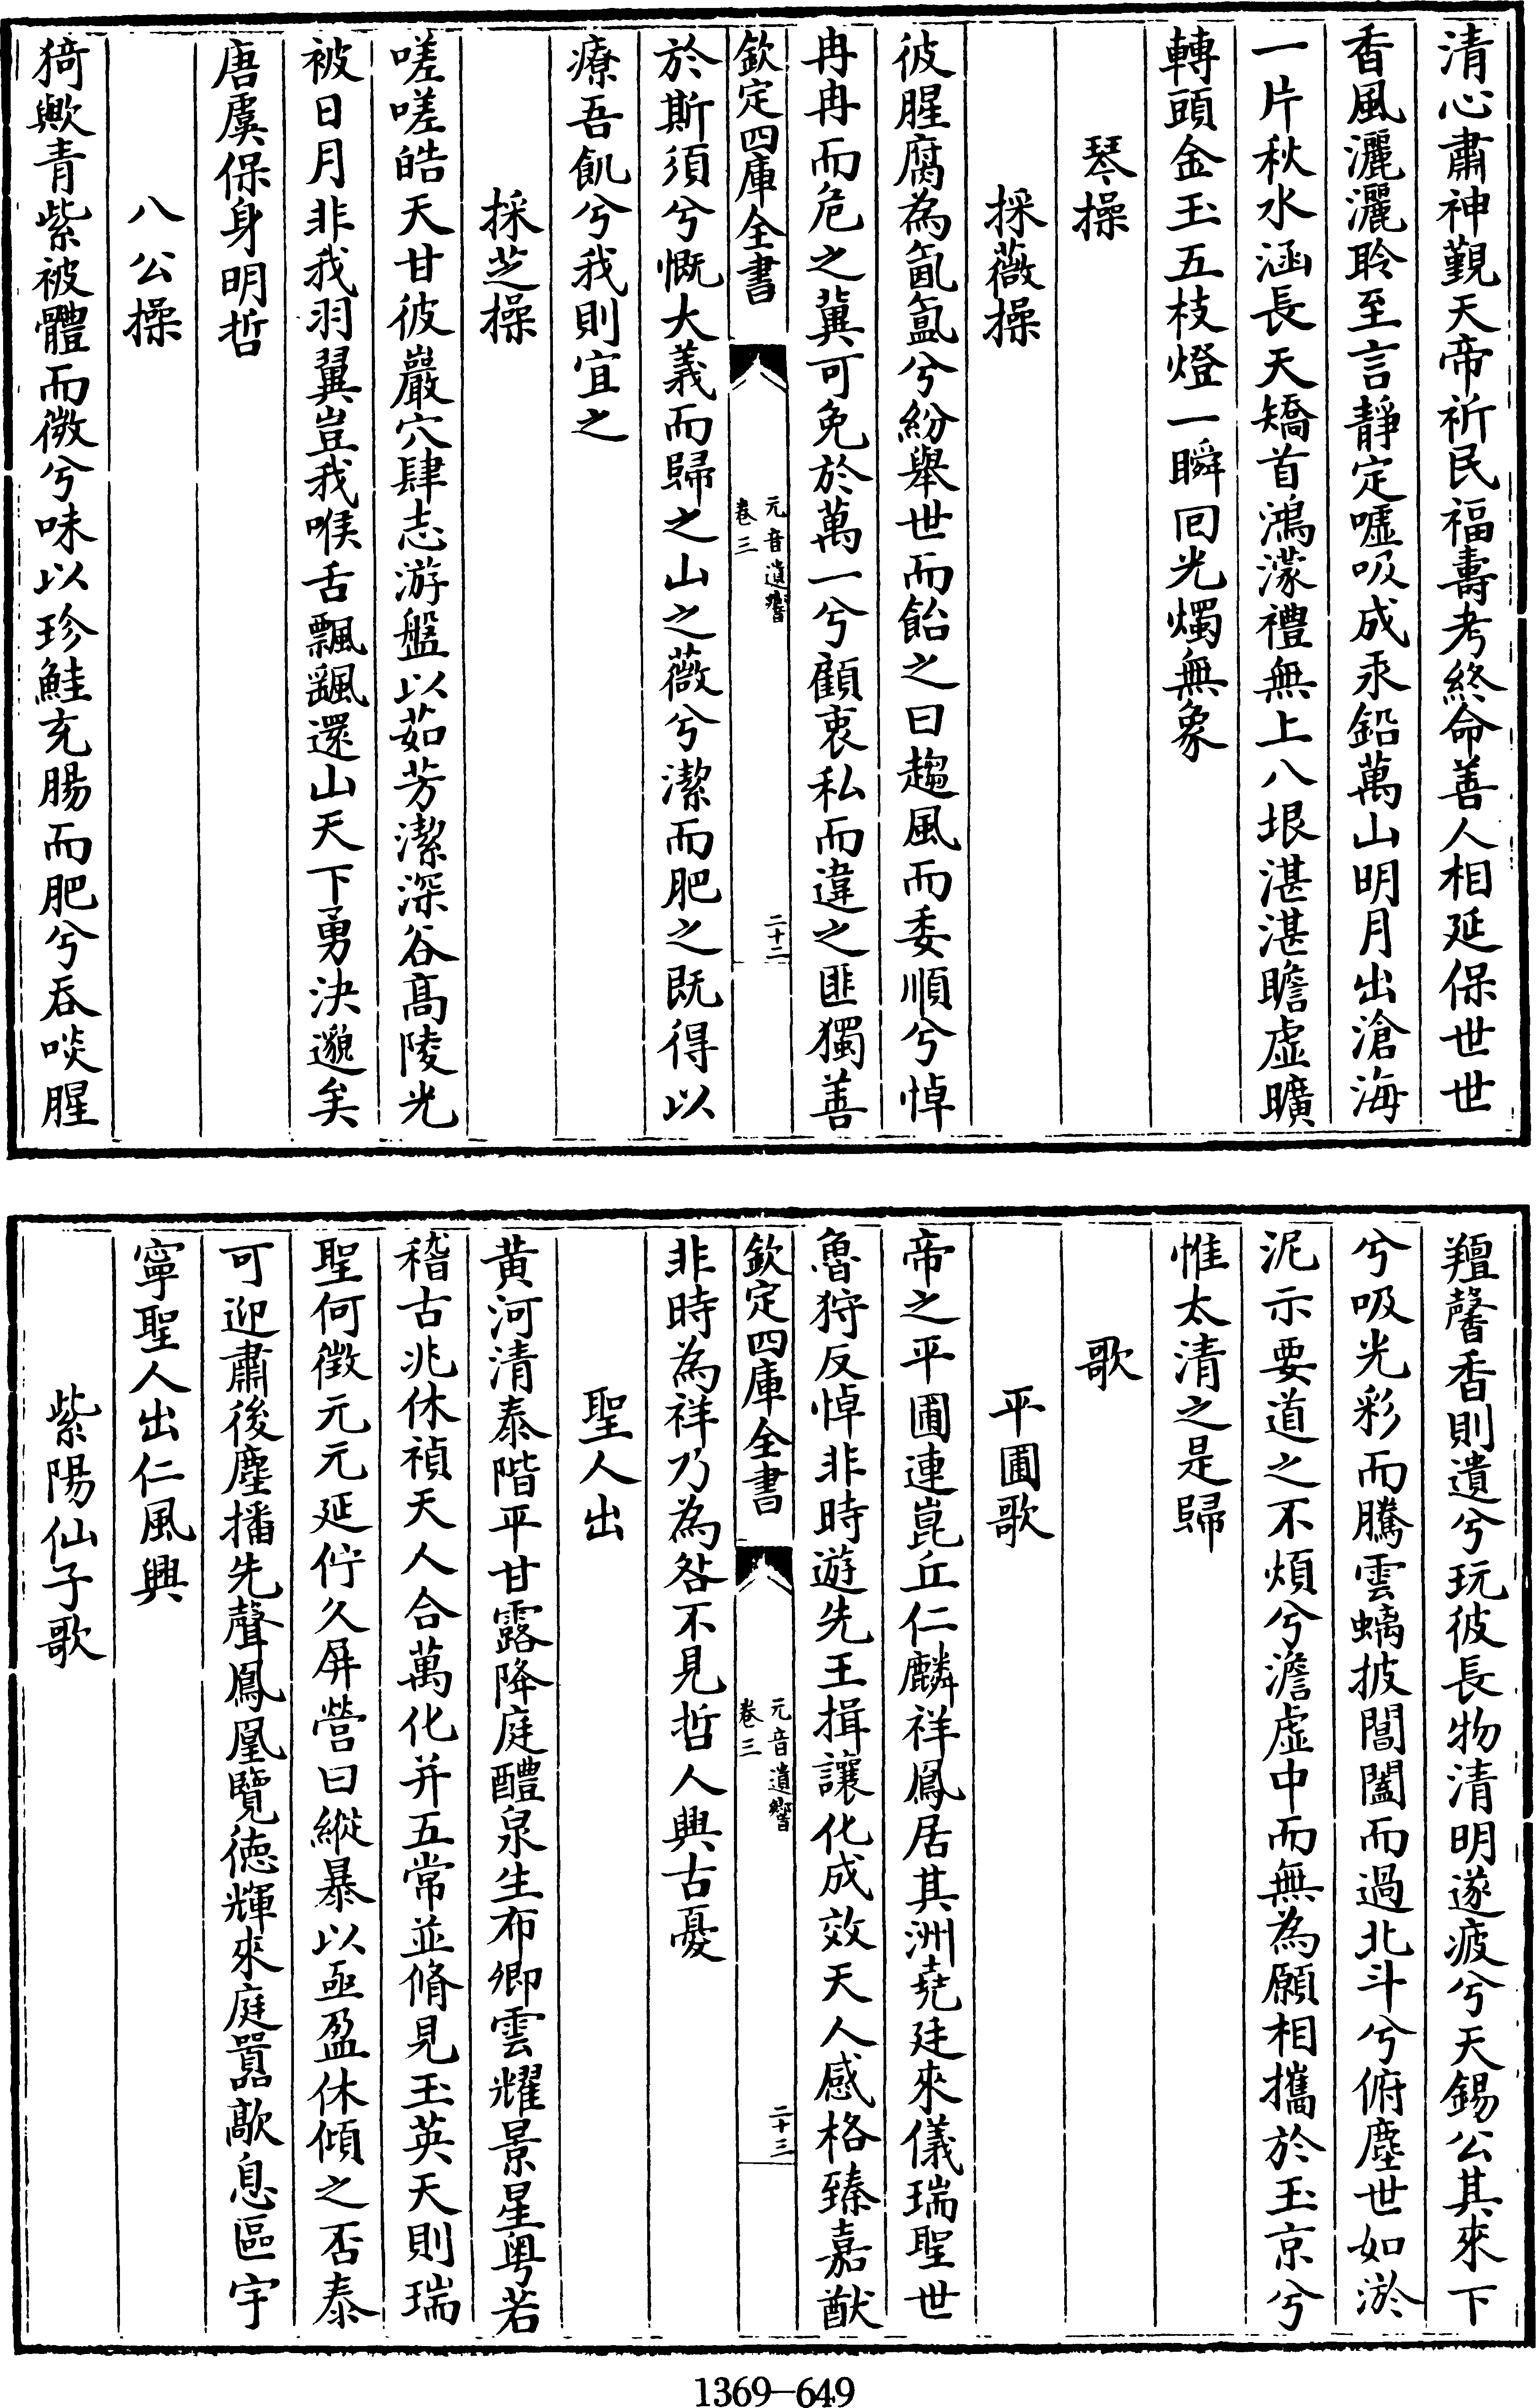 清心肅神覲天帝祈民福壽考終命善人相延保世世
香風灑灑聆至言靜定噓吸成汞鉛萬山明月出滄海
一片秋水涵長天矯首鴻濛禮無上八垠湛湛瞻虛曠
轉頭金玉五枝燈一瞬回光燭無象
琴操
採薇操
彼腥腐為氤氳兮紛舉世而飴之曰趨風而委順兮悼
冉冉而危之冀可免於萬一兮顧衷私而違之匪獨善
欽定四庫全書
元音遺響
卷三
二十二
於斯須兮慨大義而歸之山之薇兮潔而肥之既得以
療吾飢兮我則宜之
採芝操
嗟嗟皓天甘彼巖穴肆志游盤以茹芳潔深谷高陵光
被日月非我羽翼豈我喉舌飄颻還山天下勇決邈矣
唐虞保身明哲
八公操
猗歟青紫被體而微兮味以珍鮭充腸而肥兮吞啖腥
羶馨香則遺兮玩彼長物清明遂疲兮天錫公其來下
兮吸光彩而騰雲螭披閶闔而過北斗兮俯塵世如淤
泥示要道之不煩兮澹虛中而無為願相攜於玉京兮
惟太清之是歸
歌
平圃歌
帝之平圃連崑丘仁麟祥鳳居其洲堯廷來儀瑞聖世
魯狩反悼非時遊先王揖讓化成效天人感格臻嘉猷
欽定四庫全書
元音遺響
卷三
二十三
非時為祥乃為咎不見哲人興古憂
聖人出
黃河清泰階平甘露降庭醴泉生布卿雲耀景星粵若
稽古兆休禎天人合萬化并五常並脩見玉英天則瑞
聖何徵元元延佇久屏營曰縱暴以亟盈休傾之否泰
可迎肅後塵播先聲鳳凰覽德輝來庭囂歊息區宇
寧聖人出仁風興
紫陽仙子歌
1369—649